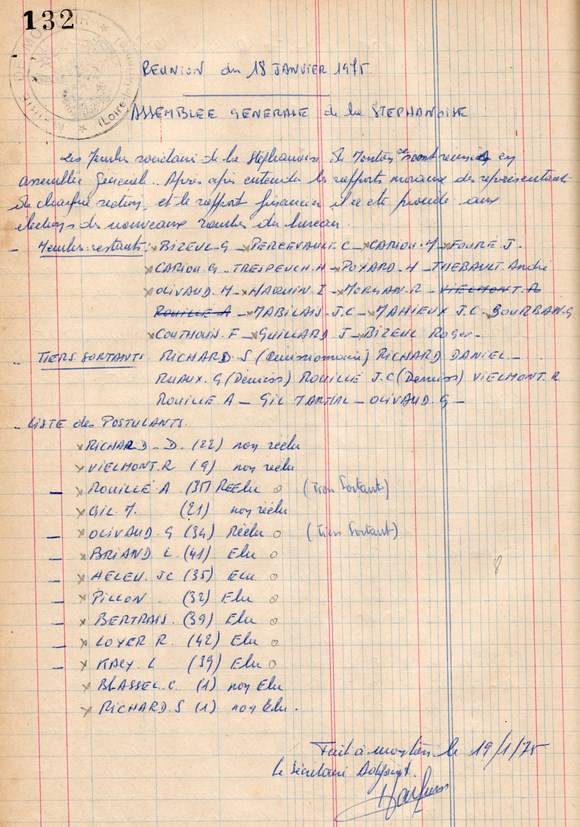 132
REUNION du 18 JANVIER 1975
ASSEMBLEE GENERALE de la STEPHANOISE
Les Membres sociétaires de la Stéphanoise de Montoir se sont réunis en
assemblée Générale. Après avoir entendu les rapports moraux des représentants
de chaque section, et le rapport financier il a été procédé aux
élections des nouveaux membres du bureau.
- Membres restants: x BIZEUL G - x PERCEVAULT. C - x CARIOU. M - x FOURÉ J.
x CARIOU G - TRESPEUCH. H - x POYARD. H - THEBAULT. André
x OLIVAUD. M - x HAQUIN. I - x MORGAN. R - VIELMONT. R
ROUILLE A - x MABILAIS. J.C - x MAHIEUX J.C - BOURBAN. G
x COUTHOUIS. F - x GUILLARD J - x BIZEUL Roger -
- TIERS SORTANTS RICHARD. S (Démissionnaire) RICHARD DANIEL -
RUAUX. G (Demiss) ROUILLE J.C (Demiss) VIELMONT. R
ROUILLE A - GIL MARTIAL - OLIVAUD. G -
- LISTE des POSTULANTS.
x RICHARD - D. (22) non réélu
x VIELMONT. R (9) non réélu
- x ROUILLÉ A (37) Réélu o (Tiers Sortant)
x GIL. M. (21) non réélu
- x OLIVAUD. G (34) Réélu o (Tiers Sortant)
- x BRIAND. L (41) Elu o
- x HELEU. JC (35) Elu o
- x PILLON (32) Elu o
- x BERTRAIS. (39) Elu o
- x LOYER R. (42) Elu o
- x KALY. L (39) Elu o
x BLASSEL. C. (1) non Elu
x RICHARD. S (1) non Elu.
8
Fait à Montoir le 19/1/75
Le Secrétaire Adjoint